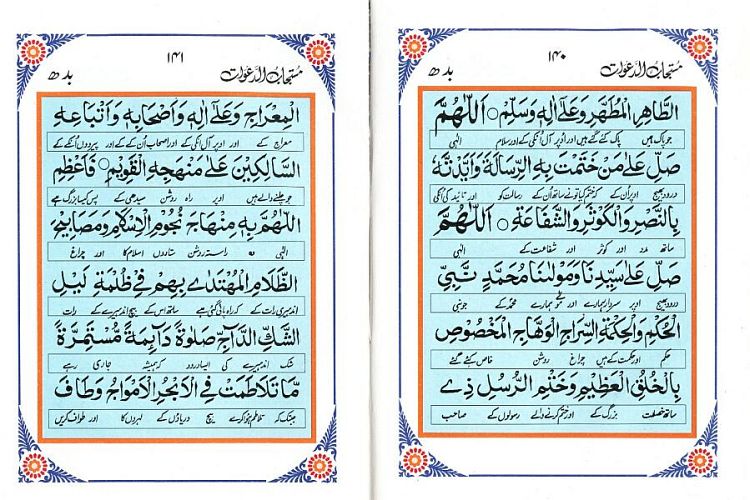 مستجاب الدعوات
۱۴۰
بدھ
الطَّاهِرِ الْمُطَهَّرِ وَعَلٰۤى اٰلِهٖ وَسَلِّمْ ۞ اَللّٰهُمَّ
جو پاک ہیں پاک کئے گئے ہیں اور اُوپر آل اُنکی کے اور سلام الٰہی
صَلِّ عَلٰى مَنْ خَتَمْتَ بِهِ الرِّسَالَةَ وَاَيَّدْتَّهٗ
درود بھیج اوپر اُن کے کہ ختم کیا تو نے ساتھ اُن کے رسالت کو اور تائید کی اُنکی
بِالنَّصْرِ وَالْكَوْثَرِ وَالشَّفَاعَةِ ۞ اَللّٰهُمَّ
ساتھ مدد اور کوثر اور شفاعت کے الٰہی
صَلِّ عَلٰى سَيِّدِنَا وَمَوْلٰىنَا مُحَمَّدٍ نَّبِيِّ
درود بھیج اوپر سردار ہمارے اور ہمارے محمدؐ کے جو نبی
الْحُكْمِ وَالْحِكْمَةِ السِّرَاجِ الْوَهَّاجِ الْمَخْصُوْصِ
حکم اور حکمت کے ہیں چراغ روشن خاص کئے گئے
بِالْخُلُقِ الْعَظِيْمِ وَخَتْمِ الرُّسُلِ ذِى
ساتھ خصلت بزرگ کے اور ختم کرنے والے رسولوں کے صاحب
مستجاب الدعوات
۱۴۱
بدھ
الْمِعْرَاجِ وَعَلٰۤى اٰلِهٖ وَاَصْحَابِهٖ وَاَتْبَاعِهِ
معراج کے اور اوپر آل اُنکی کے اور اصحاب اُن کے کے اور پیروؤں اُنکے کے
السَّالِكِيْنَ عَلٰى مَنْهَجِهِ الْقَوِيْمِ ۞ فَاَعْظِمِ
جو چلنے والے ہیں اوپر راہ روشن سیدھی کے پس کیسا بزرگ ہے
اللّٰهُمَّ بِهٖ مِنْهَاجَ نُجُوْمِ الْاِسْلَامِ وَمَصَابِيْحِ
الٰہی راستہ روشن ستاروں اسلام کا اور چراغ
الظَّلَامِ الْمُهْتَدٰى بِهِمْ فِيْ ظُلْمَةِ لَيْلِ
اندھیری رات کے کہ راہ پائی گئی ہے ساتھ اس کے بیچ اندھیرے کے رات
الشَّكِّ الدَّآجِّ صَلٰوةً دَآئِمَةً مُّسْتَمِرَّةً
شک اندھیرے کی ایسا درود کہ ہمیشہ جاری رہے
مَّا تَلَاطَمَتْ فِى الْاَبْحُرِ الْاَمْوَاجُ وَطَافَ
جبتک کہ تلاطم کرے بیچ دریاؤں کے لہروں کا اور طواف کریں